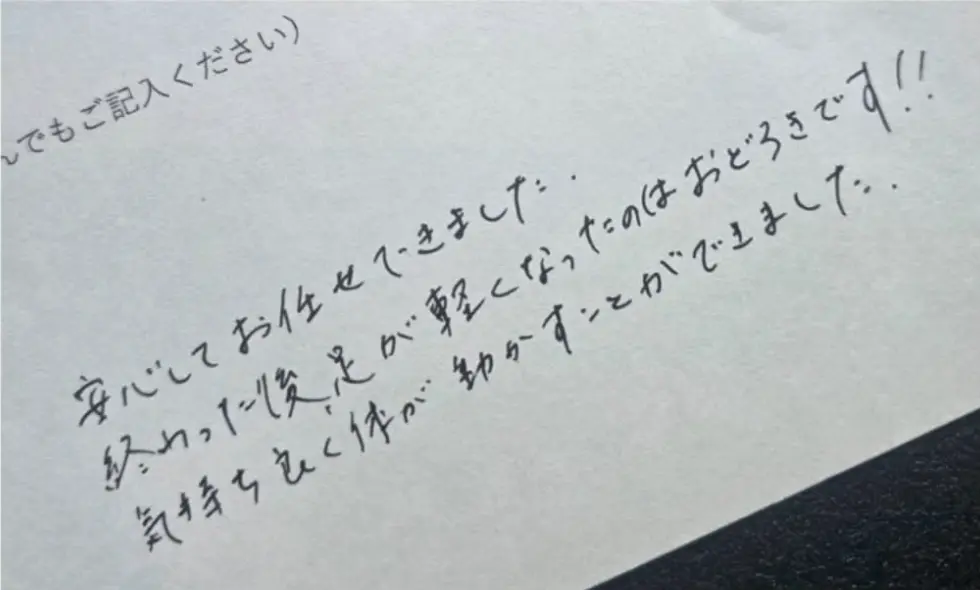 んでもご記入ください)
安心してお任せできました.
終わった後、足が軽くなったのはおどろきです!!
気持ち良く体が動かすことができました.